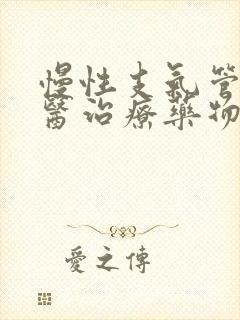 慢性支氣管
醫治療藥物
愛之傳